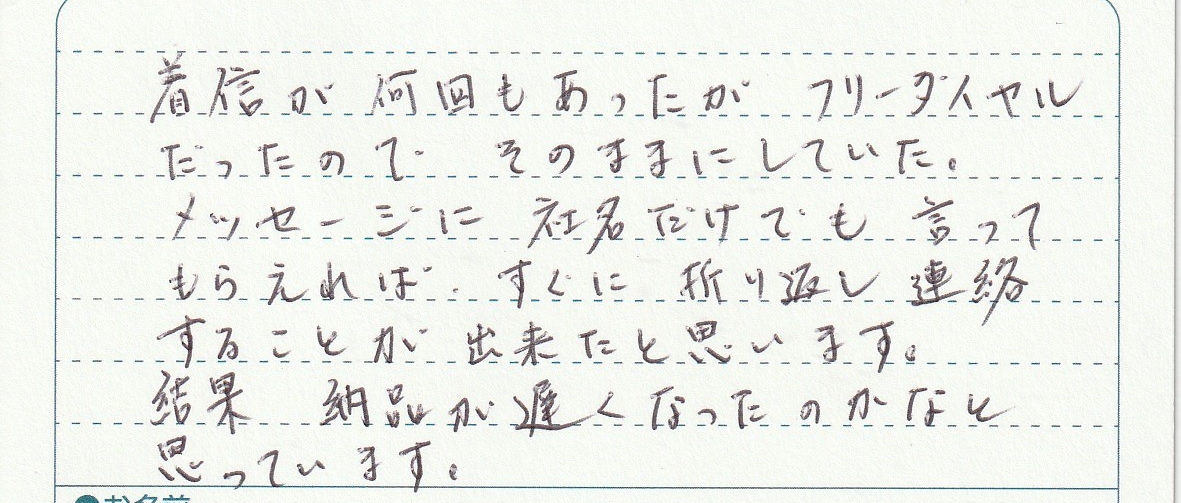 着信が何回もあったが フリーダイヤル
だったので そのままにしていた。
メッセージに 社名だけでも 言って
もらえれば、すぐに 折り返し 連絡
することが 出来たと思います。
結果 納品が遅くなったのかなと
思っています。
●お名前